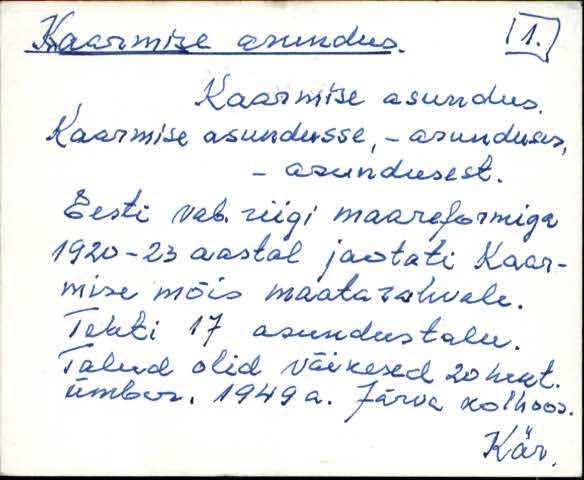 Kaarmise asundus.
1.
Kaarmise asundus.
Kaarmise asundusse, - asunduses,
- asundusest.
Eesti vab. riigi maareformiga
1920-23 aastal jaotati Kaar-
mise mõis maatarahvale.
Tekti 17 asundustalu.
Talud olid väikesed 20 hekt.
ümber. 1949 a. Järva kolhoos.
Kär.